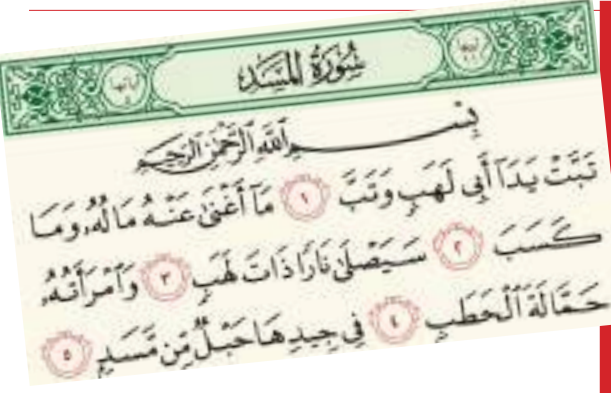 سُورَةُ المَسَدِ
بِسْمِ ٱللَّهِ ٱلرَّحْمَٰنِ ٱلرَّحِيمِ
تَبَّتْ يَدَآ أَبِى لَهَبٍ وَتَبَّ ١ مَآ أَغْنَىٰ عَنْهُ مَالُهُۥ وَمَا
كَسَبَ ٢ سَيَصْلَىٰ نَارًا ذَاتَ لَهَبٍ ٣ وَٱمْرَأَتُهُۥ
حَمَّالَةَ ٱلْحَطَبِ ٤ فِى جِيدِهَا حَبْلٌ مِّن مَّسَدٍۭ ٥